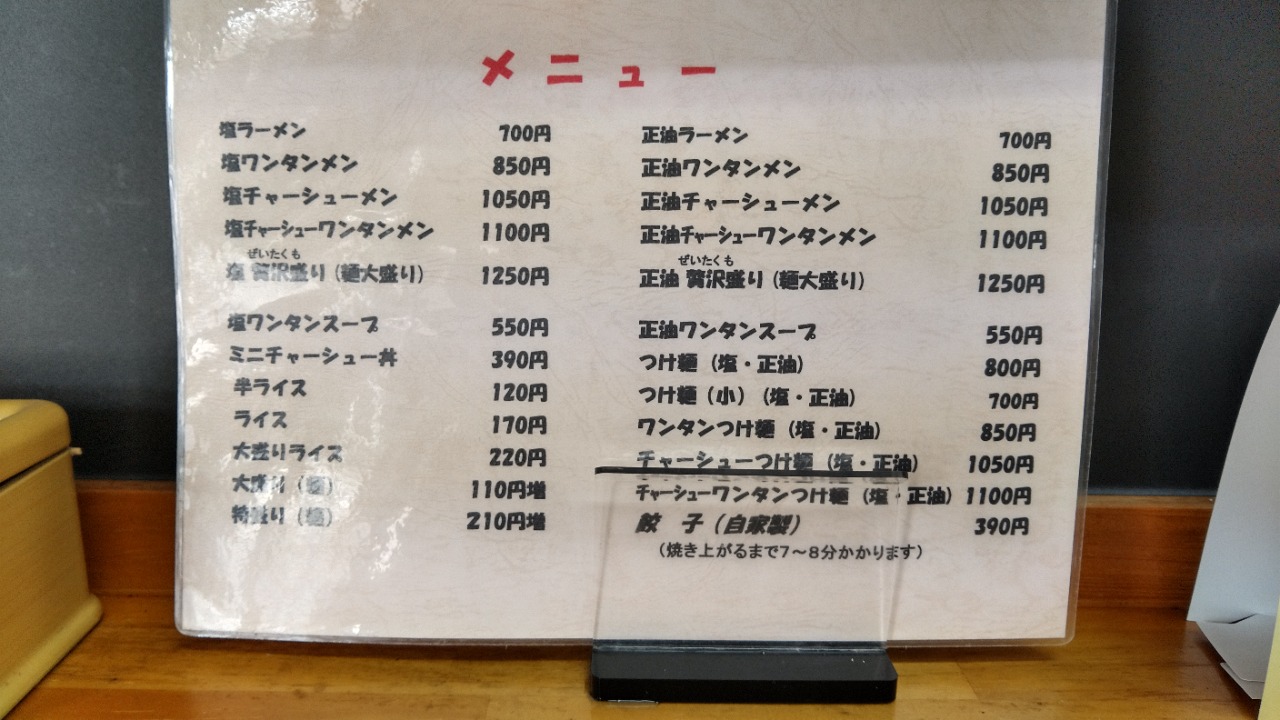 メニュー
塩ラーメン 700円
塩ワンタンメン 850円
塩チャーシューメン 1050円
塩チャーシューワンタンメン 1100円
ぜいたくも
塩 贅沢盛り (麺大盛り) 1250円
塩ワンタンスープ 550円
ミニチャーシュー丼 390円
半ライス 120円
ライス 170円
大盛りライス 220円
大盛り (麺) 110円増
特盛り (麺) 210円増
正油ラーメン 700円
正油ワンタンメン 850円
正油チャーシューメン 1050円
正油チャーシューワンタンメン 1100円
ぜいたくも
正油 贅沢盛り (麺大盛り) 1250円
正油ワンタンスープ 550円
つけ麺 (塩・正油) 800円
つけ麺 (小) (塩・正油) 700円
ワンタンつけ麺 (塩・正油) 850円
チャーシューつけ麺 (塩・正油) 1050円
チャーシューワンタンつけ麺 (塩・正油) 1100円
餃 子 (自家製) 390円
(焼き上がるまで7〜8分かかります)